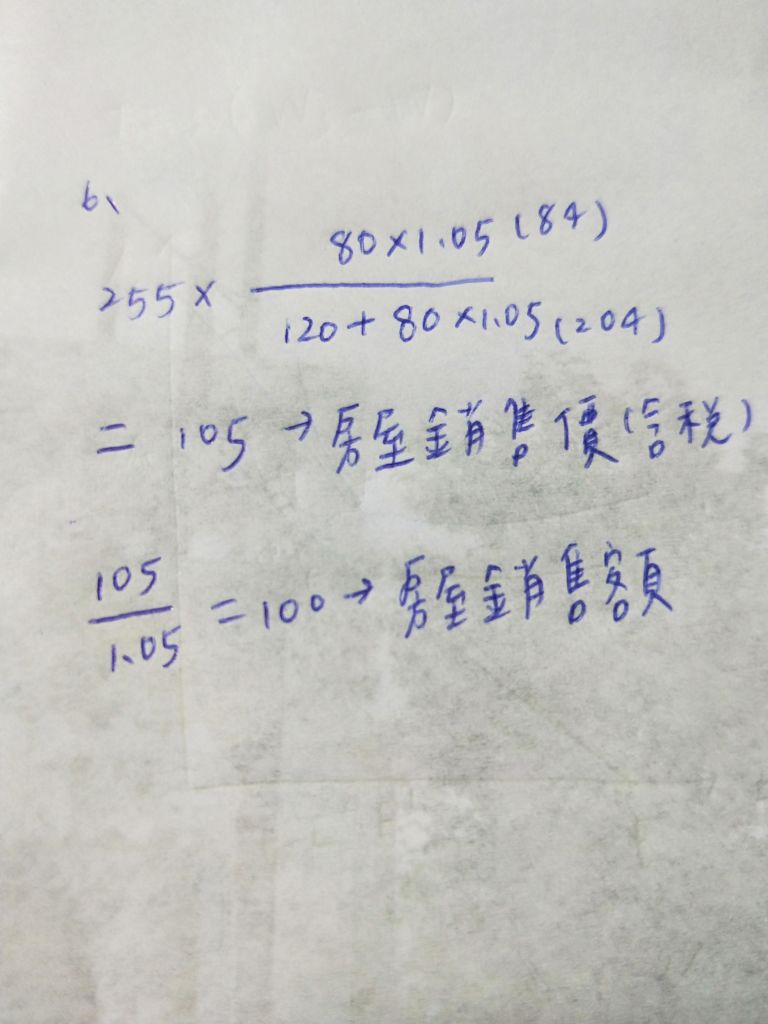 6、
80×1.05(84)
255×
120+80×1.05(204)
=105→房屋銷售價(含稅)
105
1.05
=100→房屋銷售額